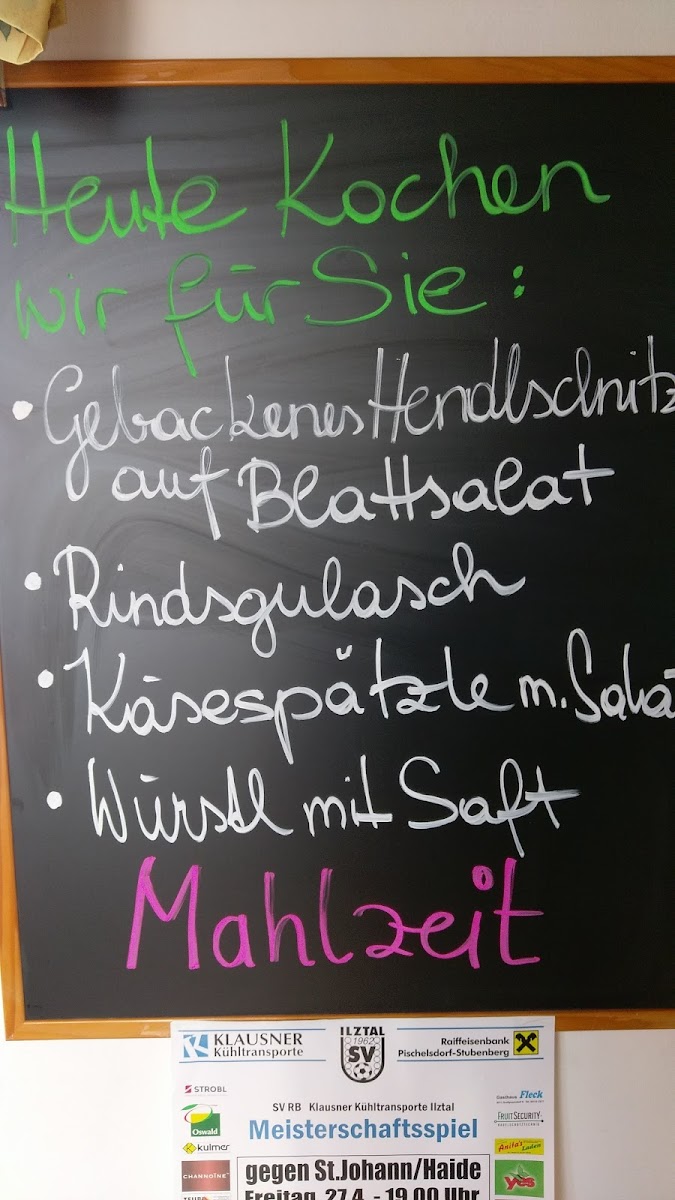 Heute Kochen
wir für Sie:
• Gebackenes Hendlschnitz
auf Blattsalat
• Rindsgulasch
• Käsespätzle m. Sala
• Würstl mit Saft
Mahlzeit
KLAUSNER
Kühltransporte
ILZTAL
1962
SV
Raiffeisenbank
Pischelsdorf-Stubenberg
STROBL
Oswald
kulmer
CHANNOINE
Gasthaus Fleck
FRUITSECURITY
Anita's
Laden
yes
SV RB Klausner Kühltransporte Ilztal
Meisterschaftsspiel
gegen St.Johann/Haide
Freitag, 27.4. - 19.00 Uhr